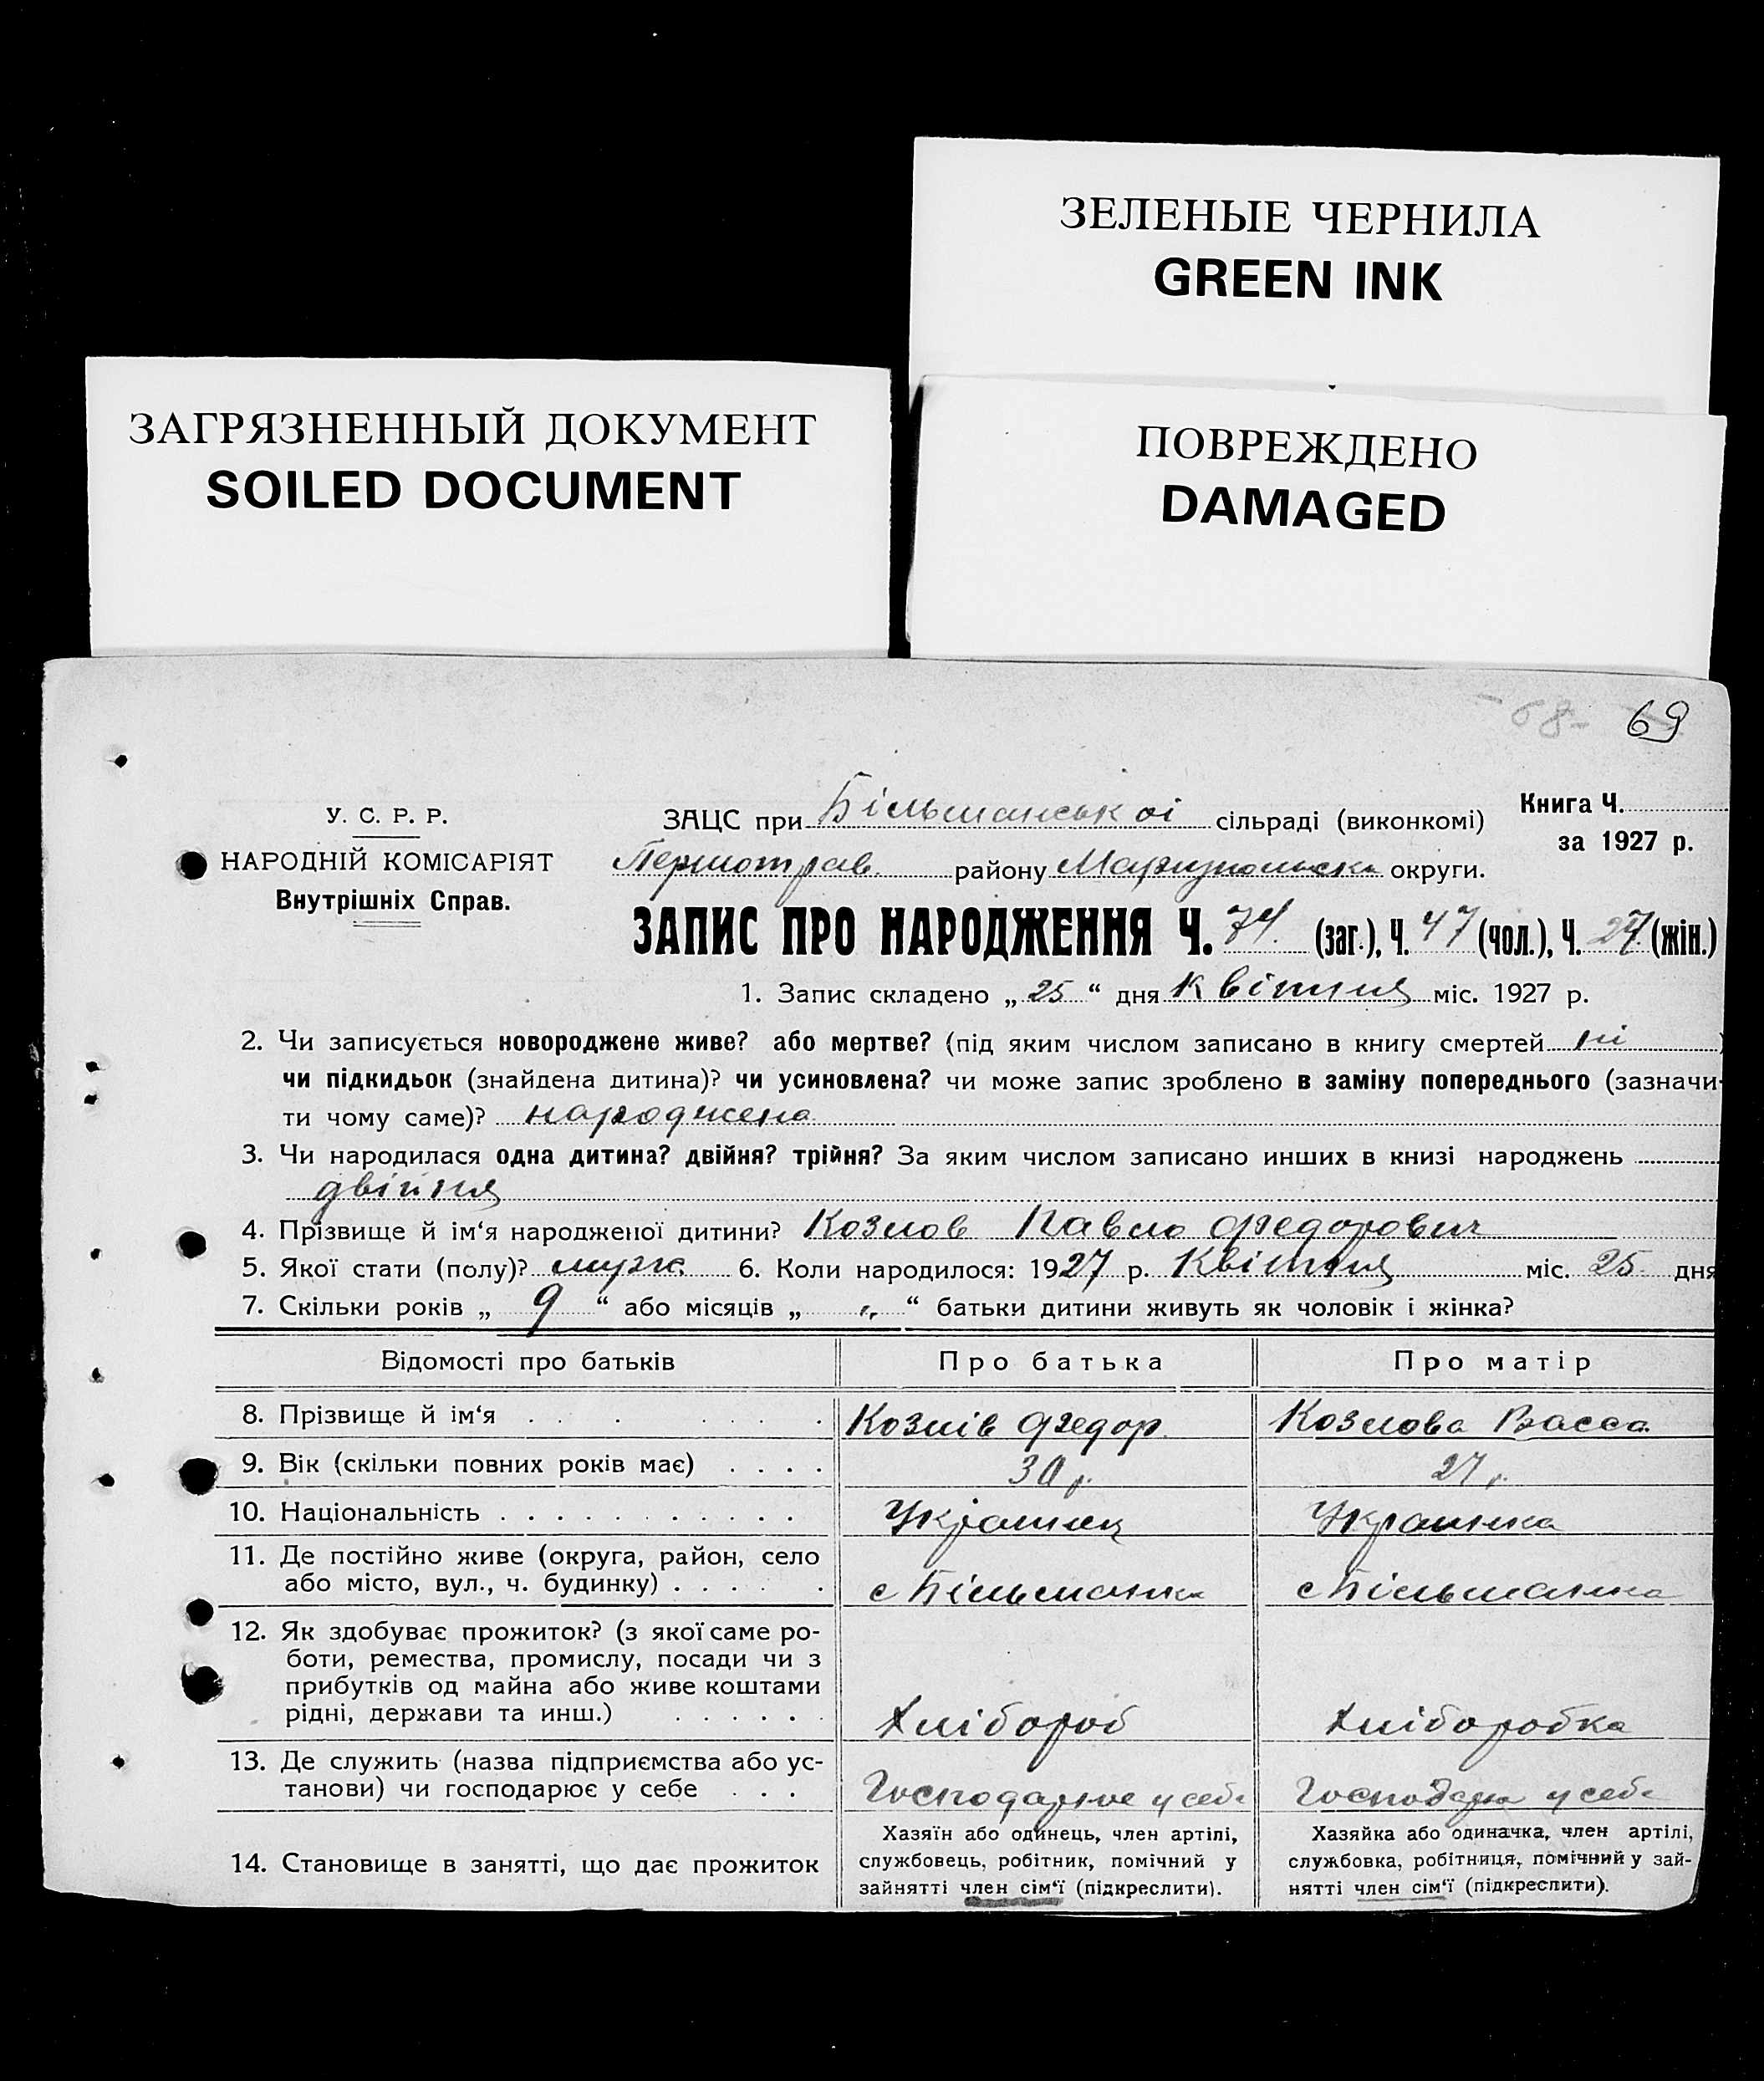 ЗЕЛЕНЫЕ ЧЕРНИЛА
GREEN INK
ЗАГРЯЗНЕННЫЙ ДОКУМЕНТ
SOILED DOCUMENT
ПОВРЕЖДЕНО
DAMAGED
-68- 69
У. С. Р. Р.
НАРОДНІЙ КОМІСАРІЯТ
Внутрішніх Справ.
Книга Ч.
за 1927 р.
ЗАЦС при Більманської сільраді (виконкомі)
Першотрав. району Маріупольськ округи.
ЗАПИС ПРО НАРОДЖЕННЯ Ч. 74. (заг.), Ч. 47 (чол.), Ч. 27 (жін.)
1. Запис складено „ 25 “ дня Квітня міс. 1927 р.
2. Чи записується новороджене живе? або мертве? (під яким числом записано в книгу смертей ні )
чи підкидьок (знайдена дитина)? чи усиновлена? чи може запис зроблено в заміну попереднього (зазначи-
ти чому саме)? народжена
3. Чи народилася одна дитина? двійня? трійня? За яким числом записано инших в книзі народжень
двійня
4. Прізвище й ім‘я народженої дитини? Козлов Павло Федорович
5. Якої стати (полу)? муж. 6. Коли народилося: 1927 р. Квітня міс. 25 дня
7. Скільки років „ 9 “ або місяців „ „ “ батьки дитини живуть як чоловік і жінка?
Відомості про батьків Про батька Про матір
8. Прізвище й ім‘я Козлів Федор. Козлова Васса
9. Вік (скільки повних років має) 30 р. 27 р.
10. Національність Українец Украинка
11. Де постійно живе (округа, район, село
або місто, вул., ч. будинку) с Більманка с Більманка
12. Як здобуває прожиток? (з якої саме ро-
боти, ремества, промислу, посади чи з
прибутків од майна або живе коштами
рідні, держави та инш.) Хлібороб Хлібробка
13. Де служить (назва підприємства або ус-
танови) чи господарює у себе Господарює у себе у себе
14. Становище в занятті, що дає прожиток
Хазяїн або одинець, член артілі,
службовець, робітник, помічний у
зайнятті член сім‘ї (підкреслити).
Хазяйка або одиначка, член артілі,
службовка, робітниця, помічний у зай-
нятті член сім‘ї (підкреслити).